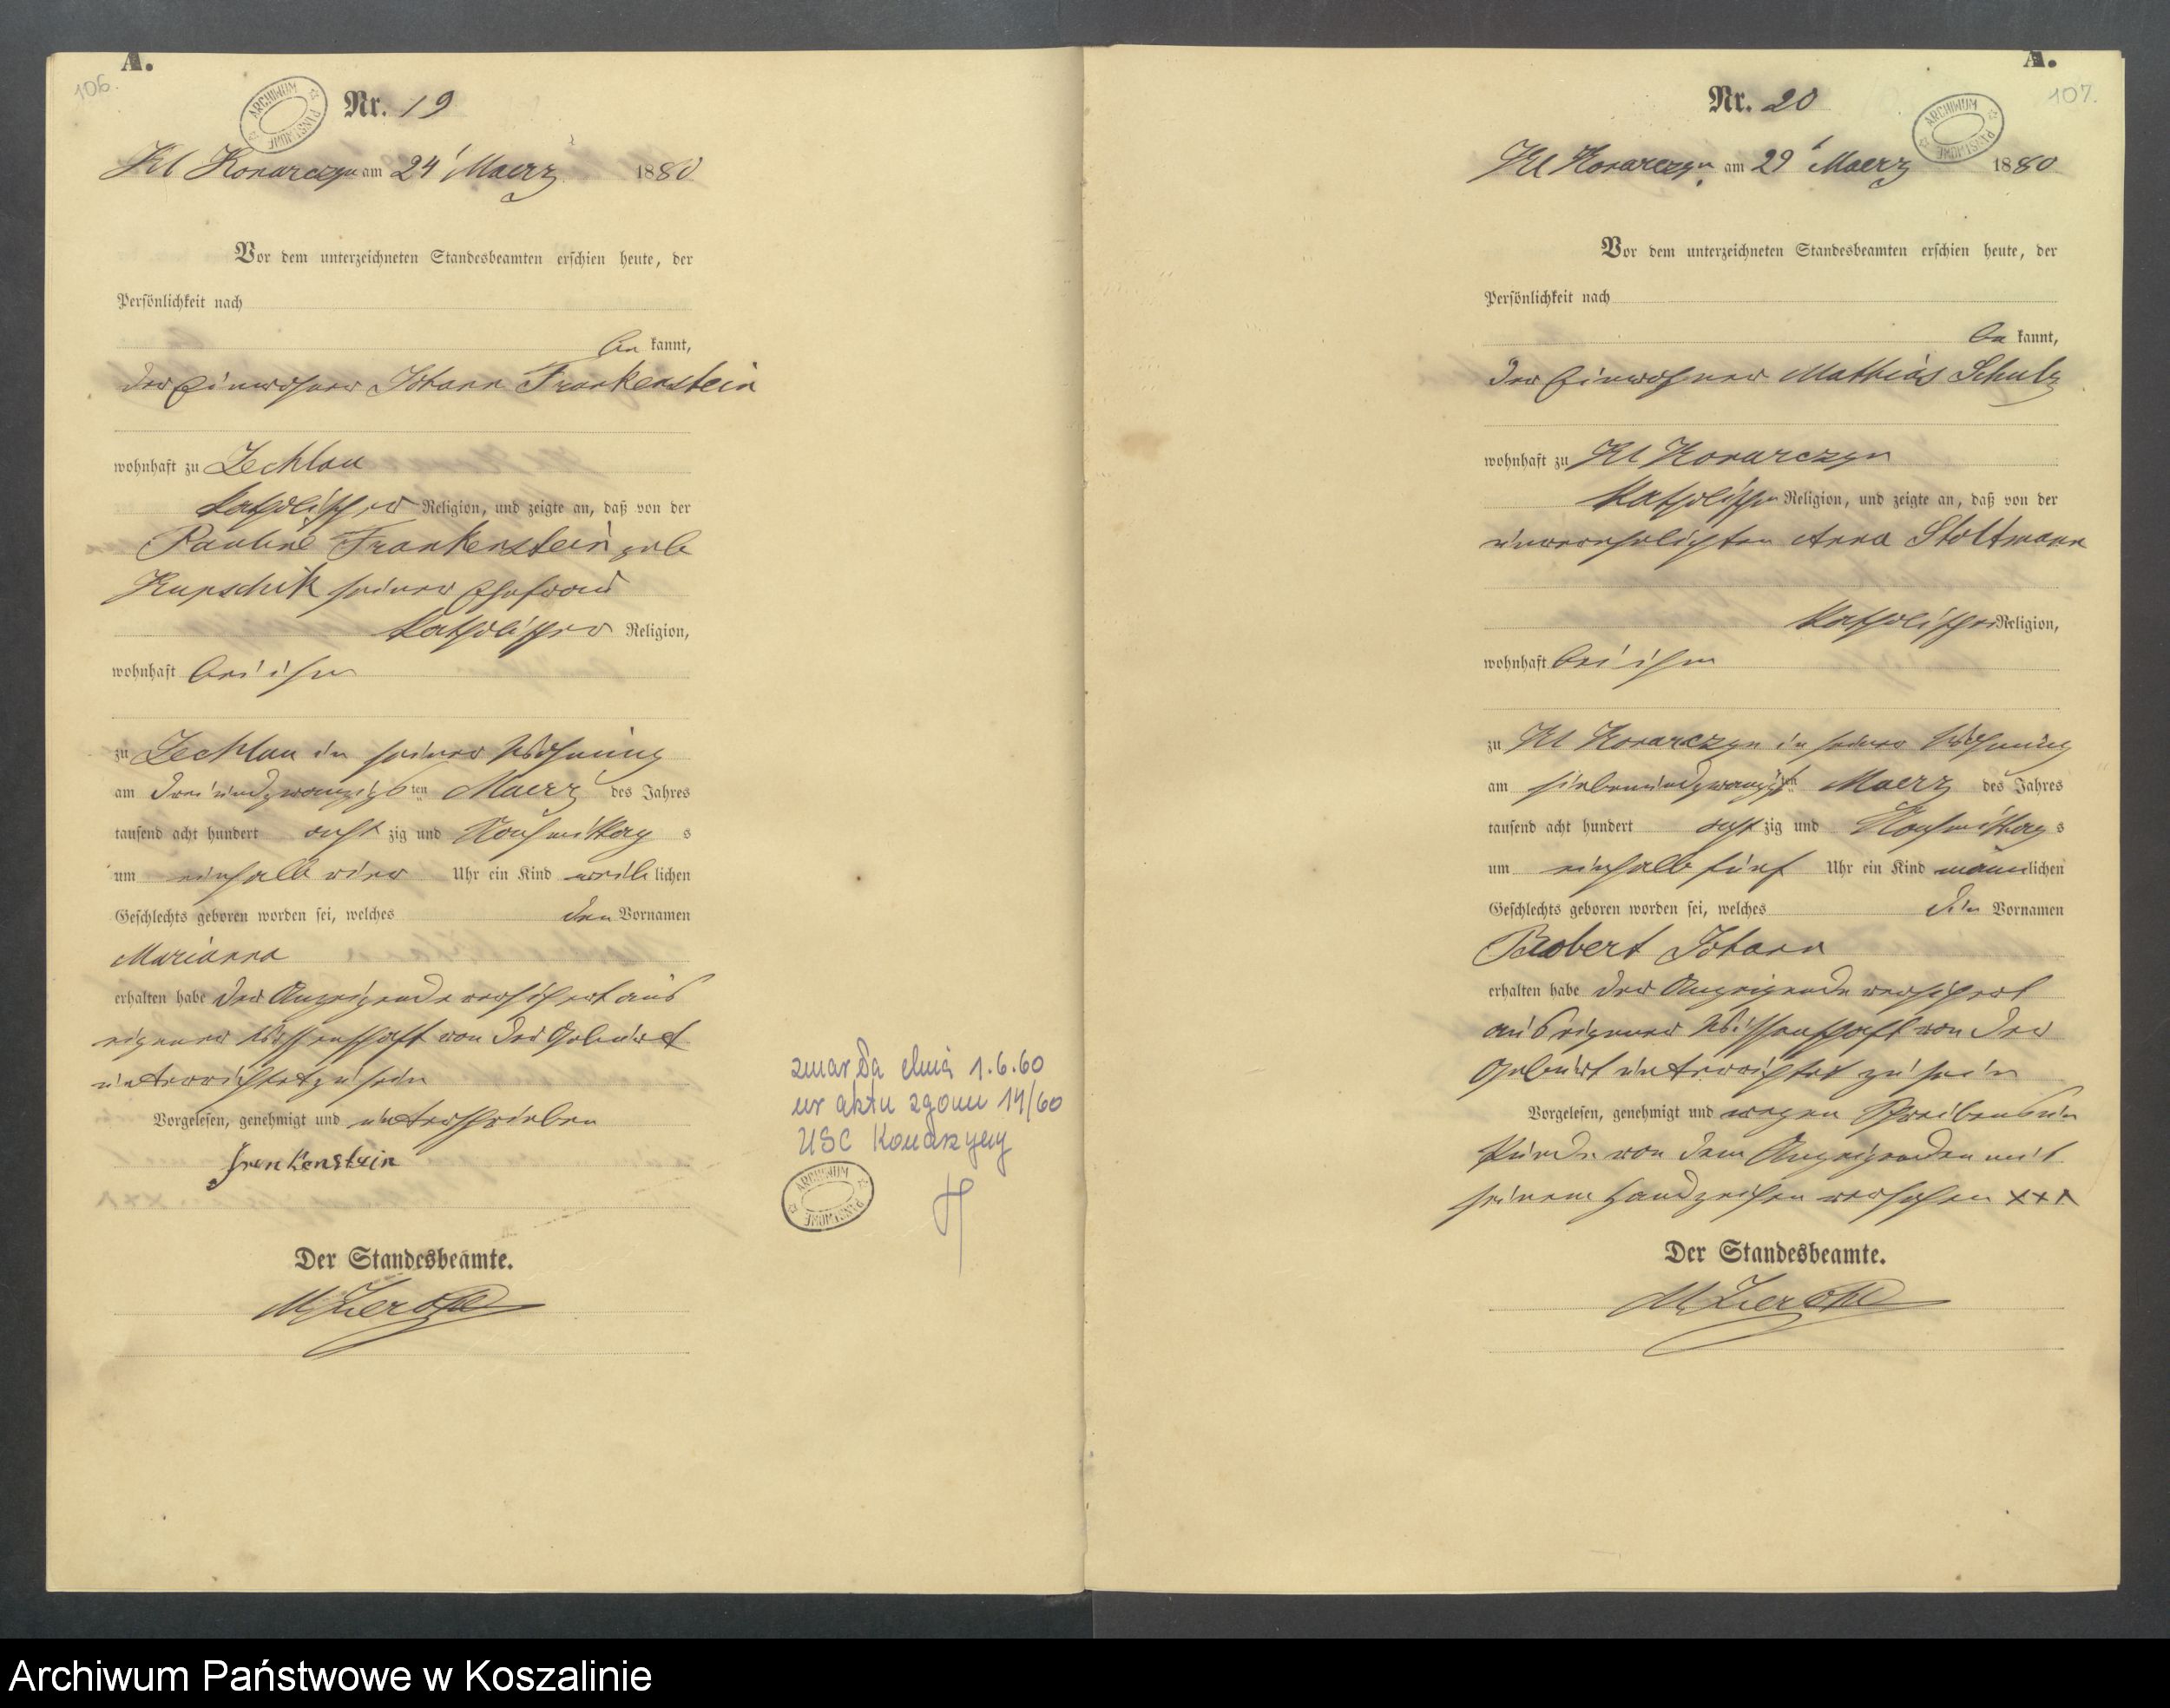 A.
106.
Nr. 19
ARCHIWUM PAŃSTWOWE
Kl Konarczyn am 24' Maerz 1880
Vor dem unterzeichneten Standesbeamten erschien heute, der
Persönlichkeit nach
be kannt,
der Einwohner Johann Frankenstein
wohnhaft zu Zechlau
katholischer Religion, und zeigte an, daß von der
Pauline Frankenstein geb
Kupschik seiner Ehefrau
katholischer Religion,
wohnhaft bei ihm
zu Zechlau in seiner Wohnung
am drei und zwanzigsten Maerz des Jahres
tausend acht hundert acht zig und Nachmittag s
um einhalb vier Uhr ein Kind weib lichen
Geschlechts geboren worden sei, welches den Vornamen
Marianna
erhalten habe der Anzeigende versichert aus
eigener Wissenschaft von der Geburt
unterrichtet zu sein
Vorgelesen, genehmigt und unterschrieben
Frankenstein
Der Standesbeamte.
zmarła dnia 1.6.60
nr aktu zgonu 14/60
USC Konarzyny
ARCHIWUM PAŃSTWOWE
A.
107.
Nr. 20
ARCHIWUM PAŃSTWOWE
Kl Konarczyn am 29' Maerz 1880
Vor dem unterzeichneten Standesbeamten erschien heute, der
Persönlichkeit nach
be kannt,
der Einwohner Mathias Schulz
wohnhaft zu Kl Konarczyn
katholischer Religion, und zeigte an, daß von der
unverehelichten Anna Stoltmann
katholischer Religion,
wohnhaft bei ihm
zu Kl Konarczyn in seiner Wohnung
am siebenundzwanzigsten Maerz des Jahres
tausend acht hundert acht zig und Nachmittag s
um einhalb fünf Uhr ein Kind männlichen
Geschlechts geboren worden sei, welches die Vornamen
Robert Johann
erhalten habe der Anzeigende versichert
aus eigener Wissenschaft von der
Geburt unterrichtet zu sein
Vorgelesen, genehmigt und wegen Schreibensun
kunde von dem Anzeigenden mit
seinem Handzeichen versehen +++
Der Standesbeamte.
Archiwum Państwowe w Koszalinie